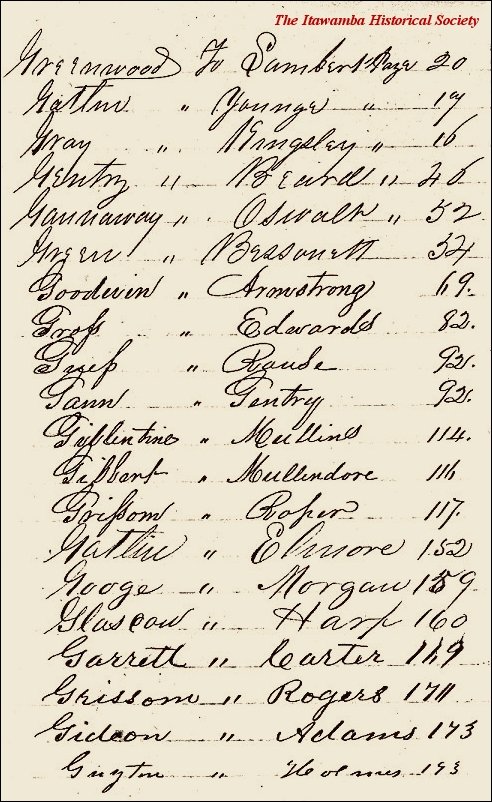 The Itawamba Historical Society
Greenwood To Lambert Page 20
Gattin " Younge " 19
Gray " Kingsley " 16
Gentry " Beard " 46
Gannaway " Oswalt " 52
Green " Bessonett 54
Goodwin " Armstrong 69.
Gross " Edwards 82.
Guess " Rause 92.
Gann " Gentry 92.
" Mullins 114.
" Mullendore 116
Grissom " Roper 117.
Gattin " Elmore 152
Googe " Morgan 159
Glascow " Harp 160
Garrett " Carter 169
Grissom " Rogers 171
Gideon " Adams 173
Guyton " Holmes 193